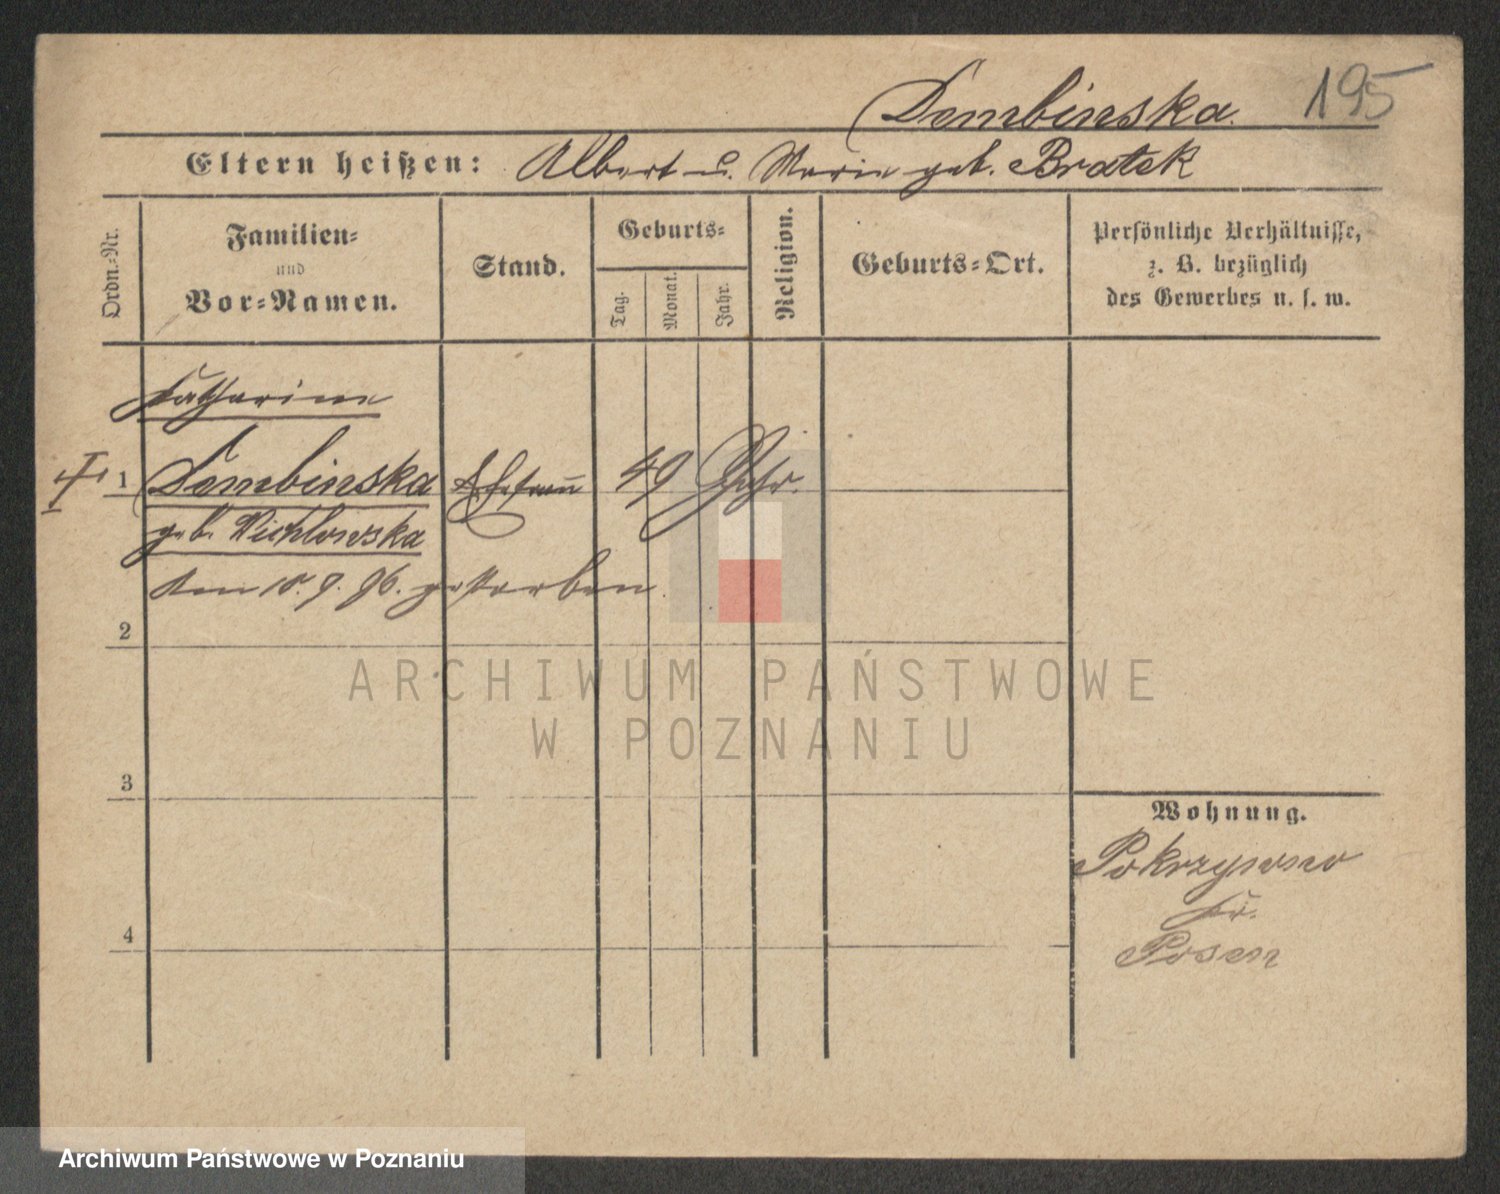 Dembinska
195
Eltern heißen: Albert u. Marie geb. Bratek
Ordn.-Nr.
Familien-
und
Vor-Namen.
Stand.
Geburts-
Tag.
Monat.
Jahr.
Religion.
Geburts-Ort.
Persönliche Verhältnisse,
z. B. bezüglich
des Gewerbes u. s. w.
Katharina
1 Dembinska Ehefrau 49 Jahr.
geb. Wichlowska
den 15. 9. 96. gestorben.
2
3
4
Wohnung.
Pokrzywno
Kr.
Posen
ARCHIWUM PAŃSTWOWE
W POZNANIU
Archiwum Państwowe w Poznaniu